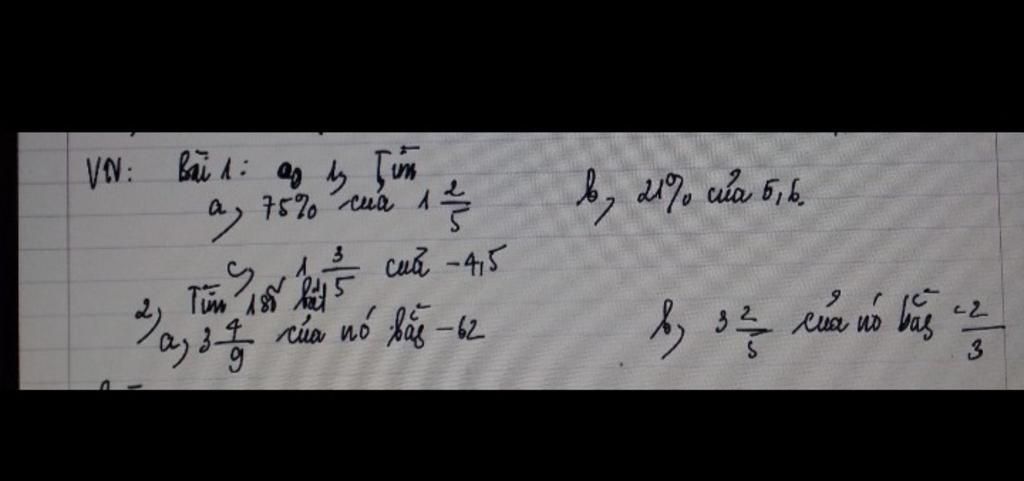 VN: Bài 1: 1, Tìm
a, 75% của 1 2/5 b, 21% của 5,6.
c, 1 3/5 của -4,5
2, Tìm 1 số biết
a, 3 4/9 của nó bằng -62 b, 3 2/5 của nó bằng -2/3